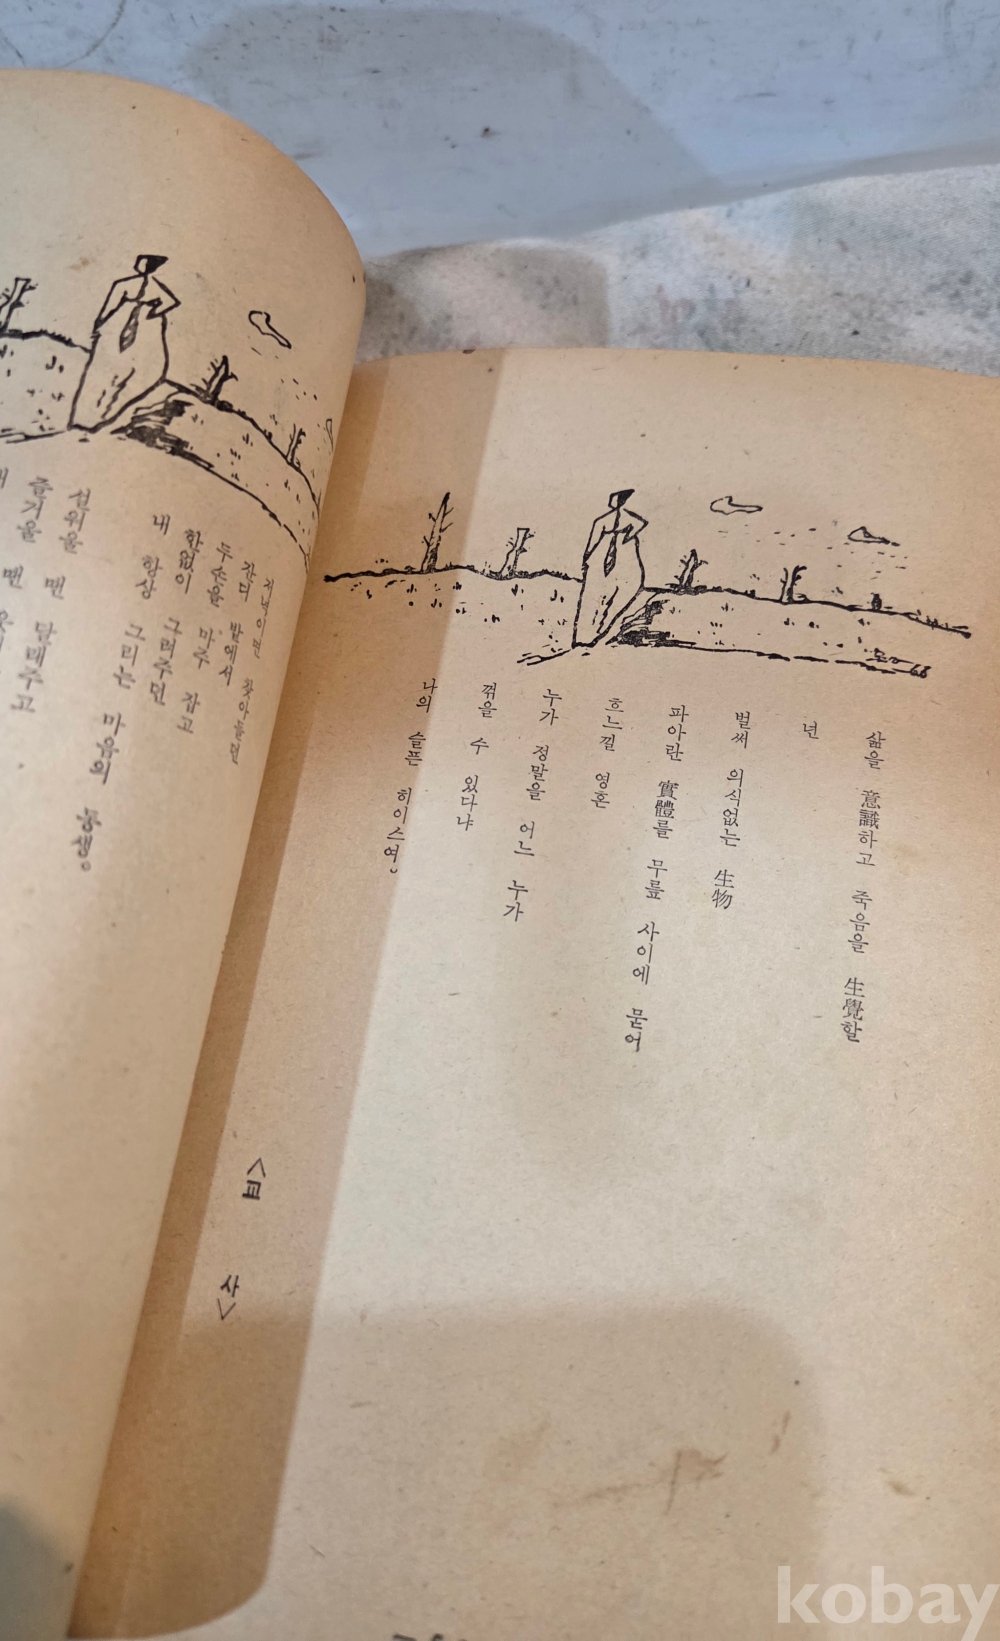 삶을 意識하고 죽음을 生覺할
년
벌써 의식없는 生物
파아란 實體를 무릎 사이에 묻어
흐느낄 영혼
누가 정말을 어느 누가
꺾을 수 있다냐
나의 슬픈 히이스여。
<교 사>
66
저녁이면 찾아들던
잔디 밭에서
두손을 마주 잡고
한없이 그려주던
내 항상 그리는 마음의 동생。
달래주고
즐거울
kobay